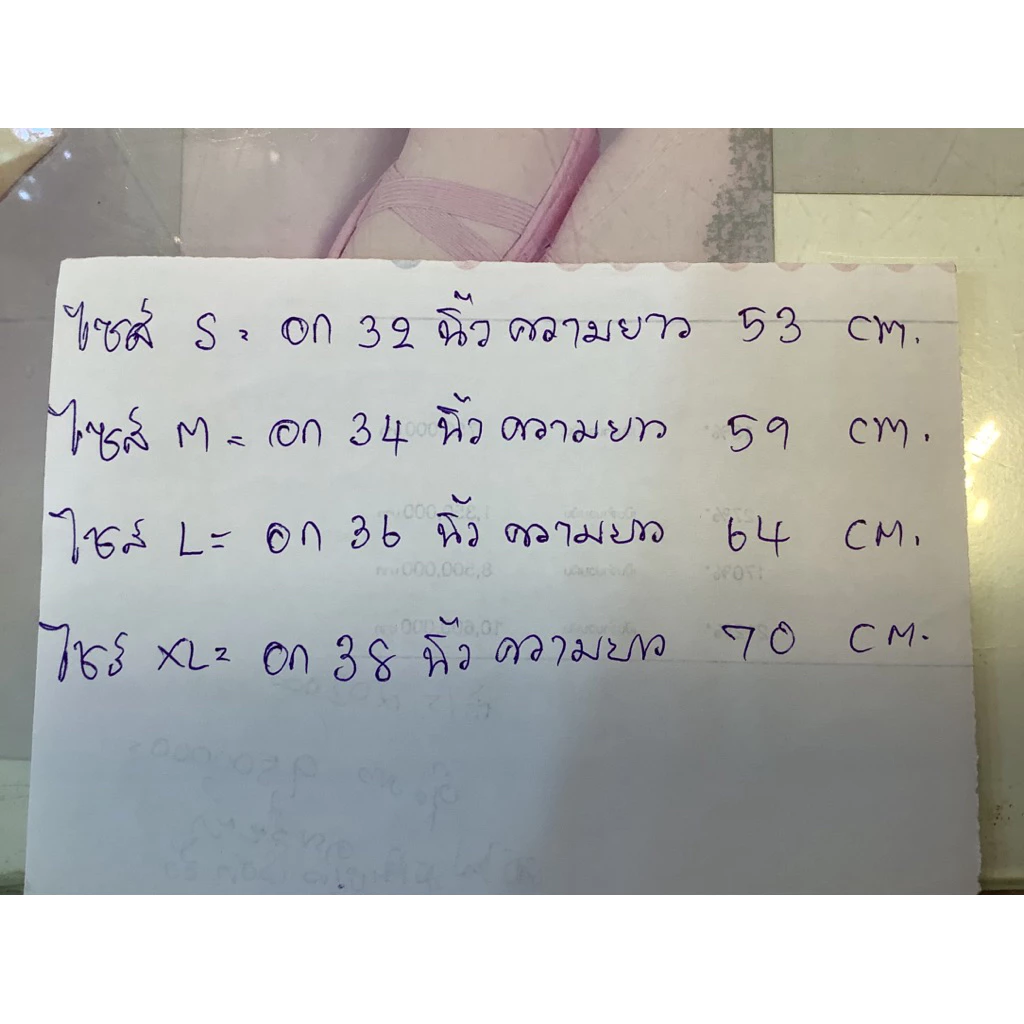 ไซส์ S = อก 32 นิ้ว ความยาว 53 cm.
ไซส์ M = อก 34 นิ้ว ความยาว 59 cm.
ไซส์ L = อก 36 นิ้ว ความยาว 64 cm.
ไซร์ XL = อก 38 นิ้ว ความยาว 70 cm.